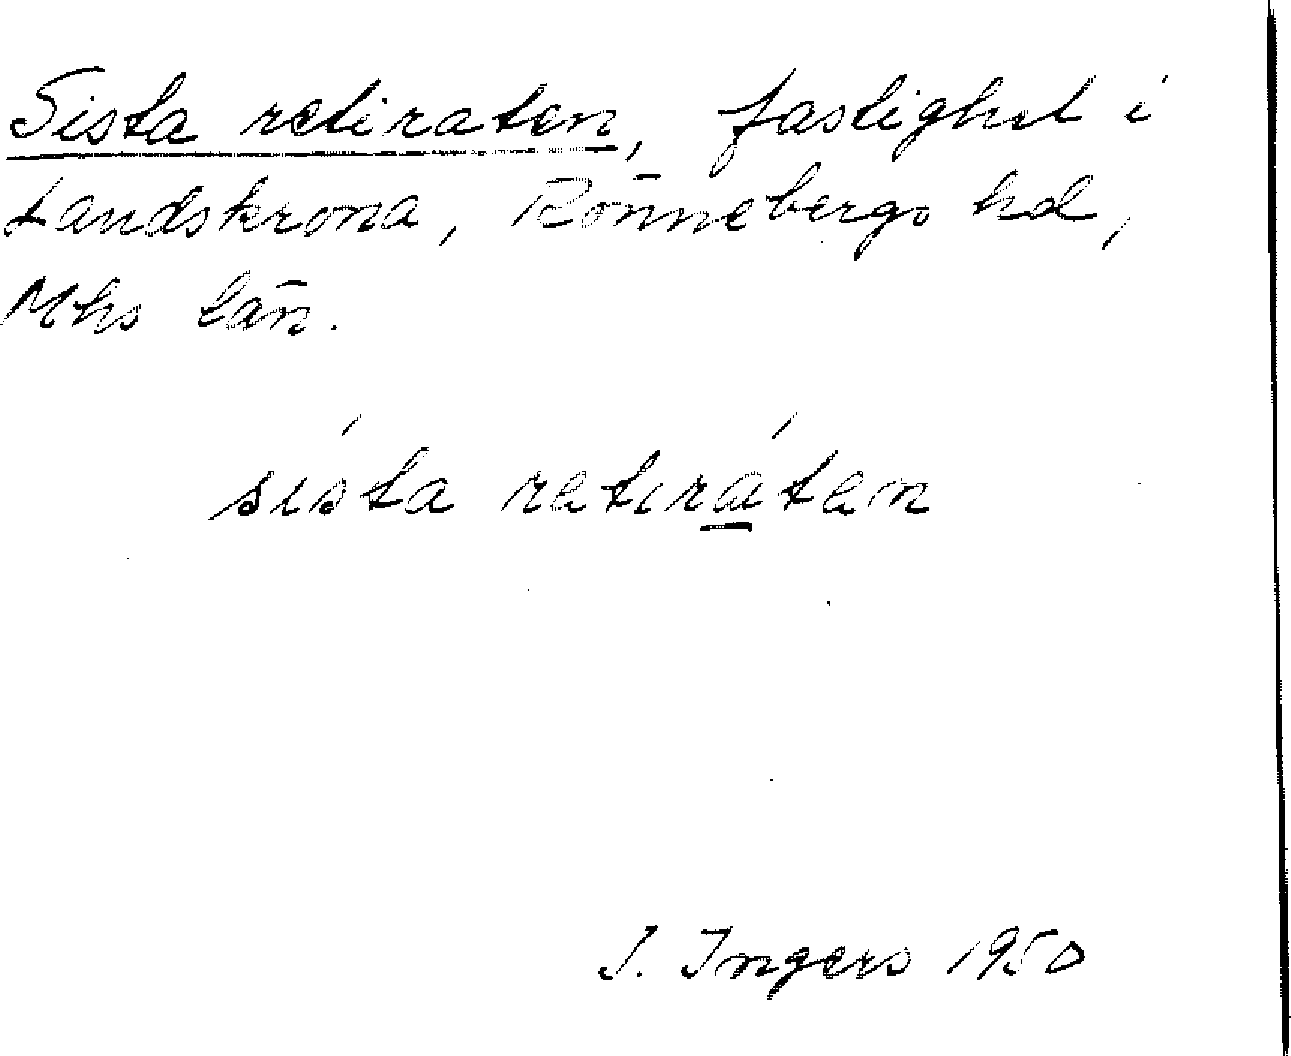 Sista retiraten, fastighet i
Landskrona, Rönnebergs hd,
Mhs län.
sísta retıráten
I. Ingers 1950